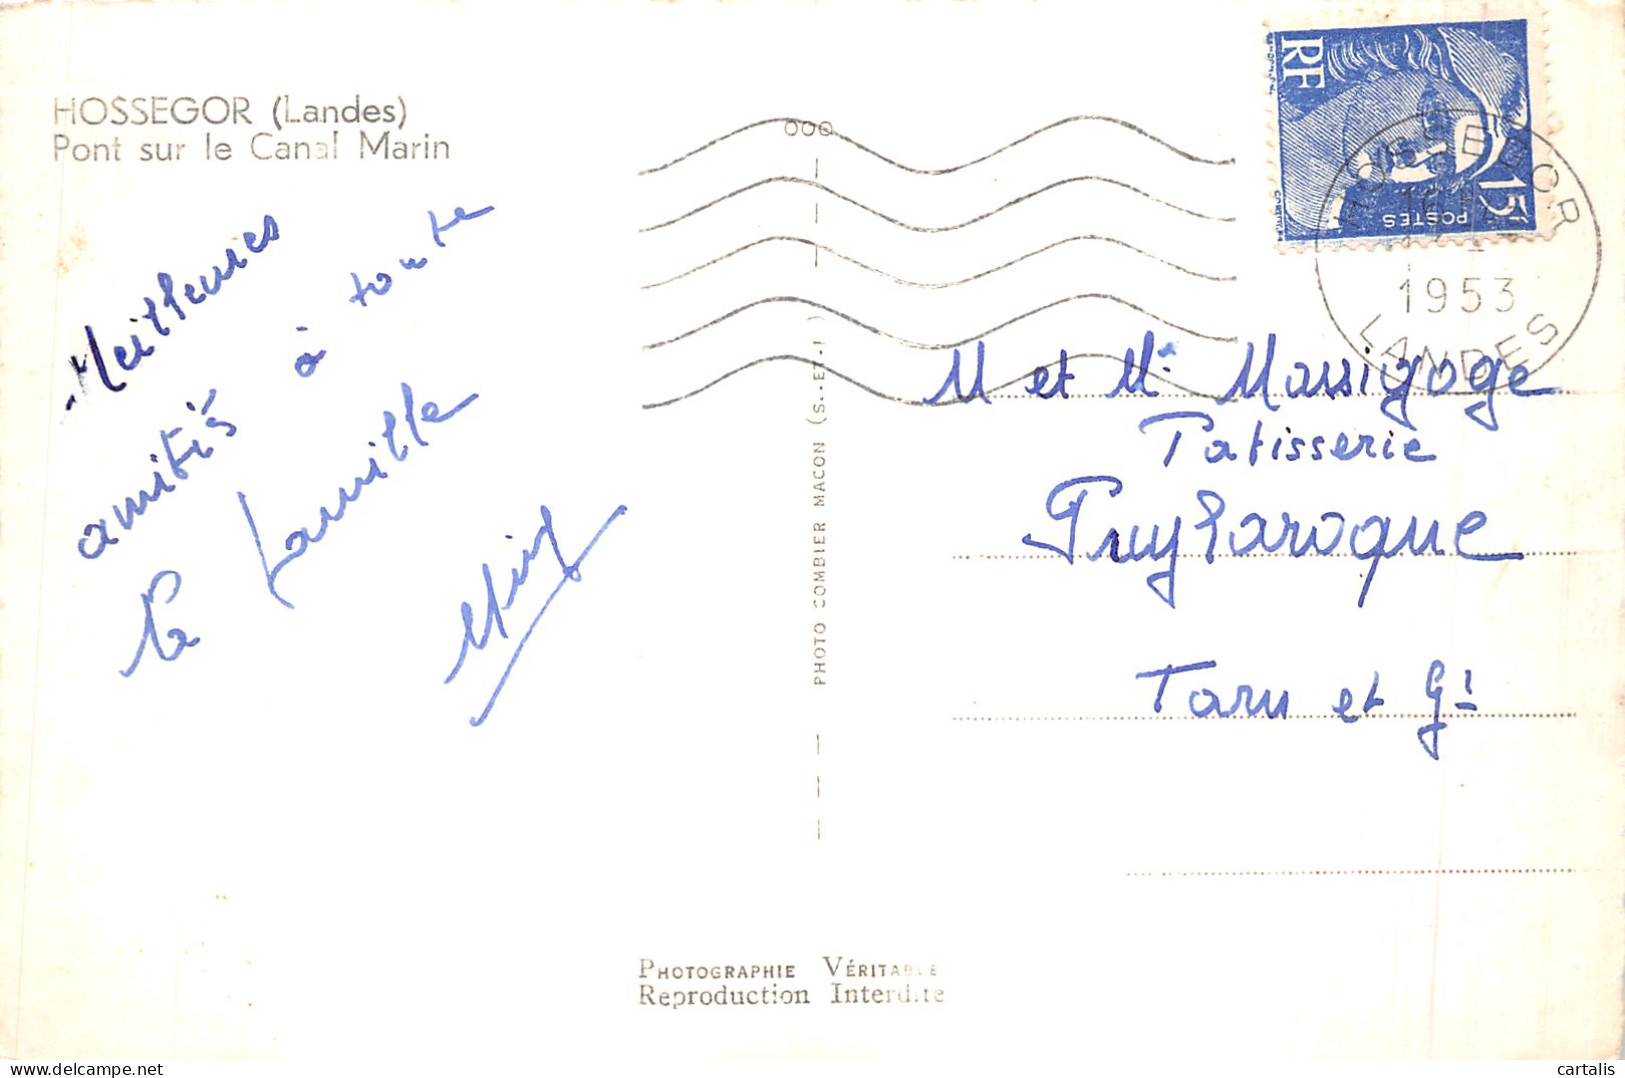 HOSSEGOR (Landes)
Pont sur le Canal Marin
Meilleures
amitiés à toute
la famille
RF
15F
POSTES
HOSSEGOR
1953
LANDES
M et Me Massigoge
Patisserie
Puylaroque
Tarn et Gne
PHOTO COMBIER MACON (S.-ET-L.)
PHOTOGRAPHIE VÉRITABLE
Reproduction Interdite
cartalis